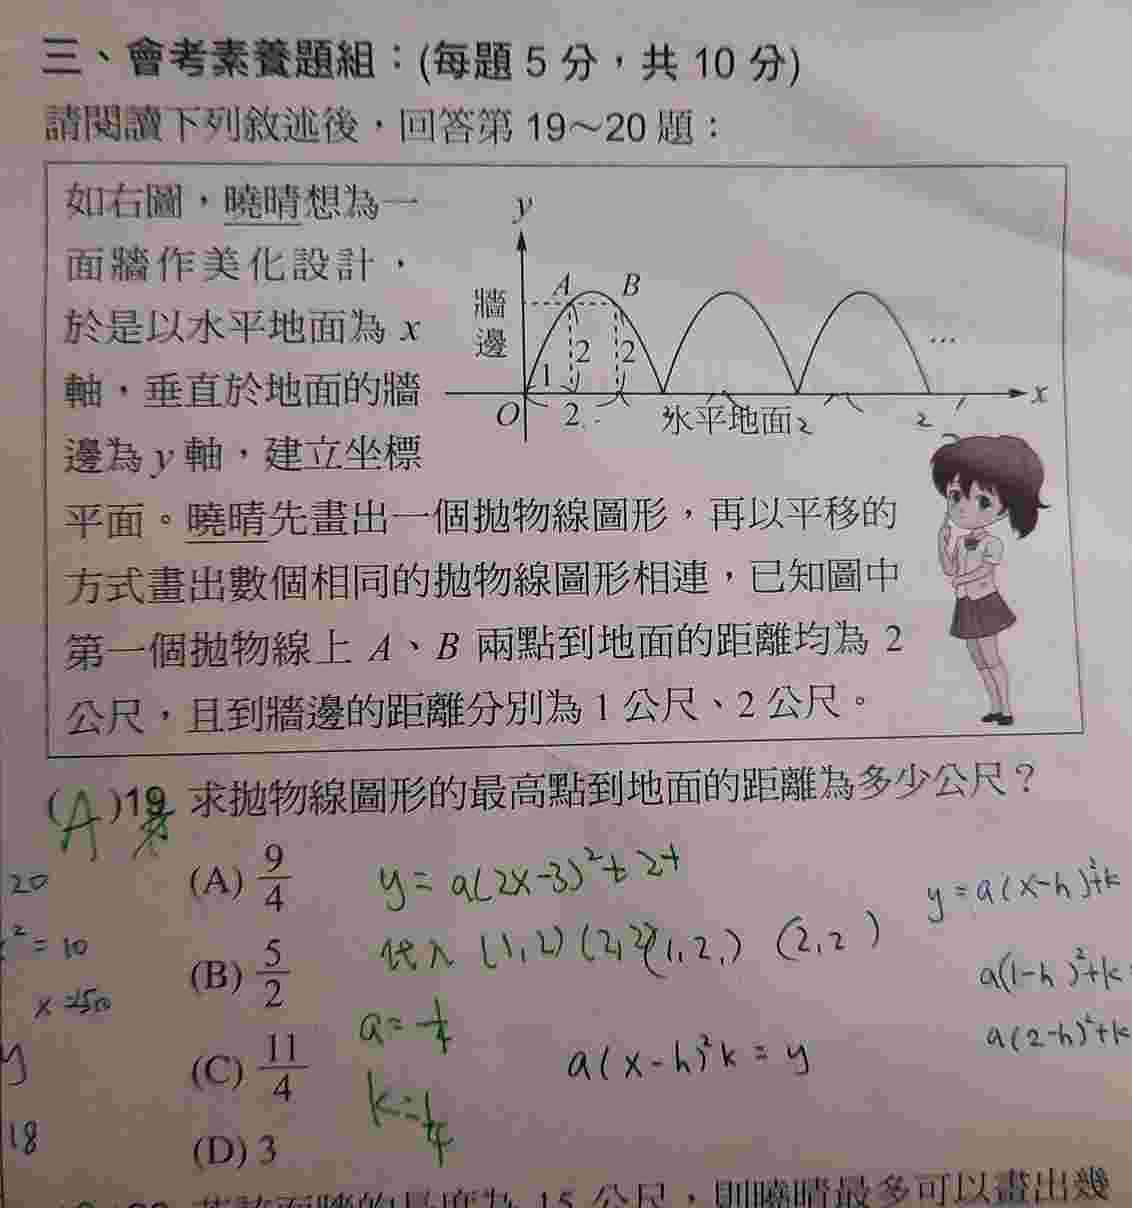 三、會考素養題組：(每題 5 分，共 10 分)
請閱讀下列敘述後，回答第 19～20 題：
如右圖，曉晴想為一
面牆作美化設計，
於是以水平地面為 x
軸，垂直於地面的牆
邊為 y 軸，建立坐標
平面。曉晴先畫出一個拋物線圖形，再以平移的
方式畫出數個相同的拋物線圖形相連，已知圖中
第一個拋物線上 A、B 兩點到地面的距離均為 2
公尺，且到牆邊的距離分別為 1 公尺、2 公尺。
y
A B
牆
邊
2 2
1
…
x
O 2 水平地面 2 2
(A)19. 求拋物線圖形的最高點到地面的距離為多少公尺？
(A) 9/4
(B) 5/2
(C) 11/4
(D) 3
y = a(2x-3)²+2+
代入 (1,2) (2,2) (1,2,) (2,2)
a = -1/4
k = 1/4
a(x-h)²k = y
y = a(x-h)²+k
a(1-h)²+k
a(2-h)²+k
20
² = 10
x
y
18
若該面牆的長度為 15 公尺，則曉晴最多可以畫出幾